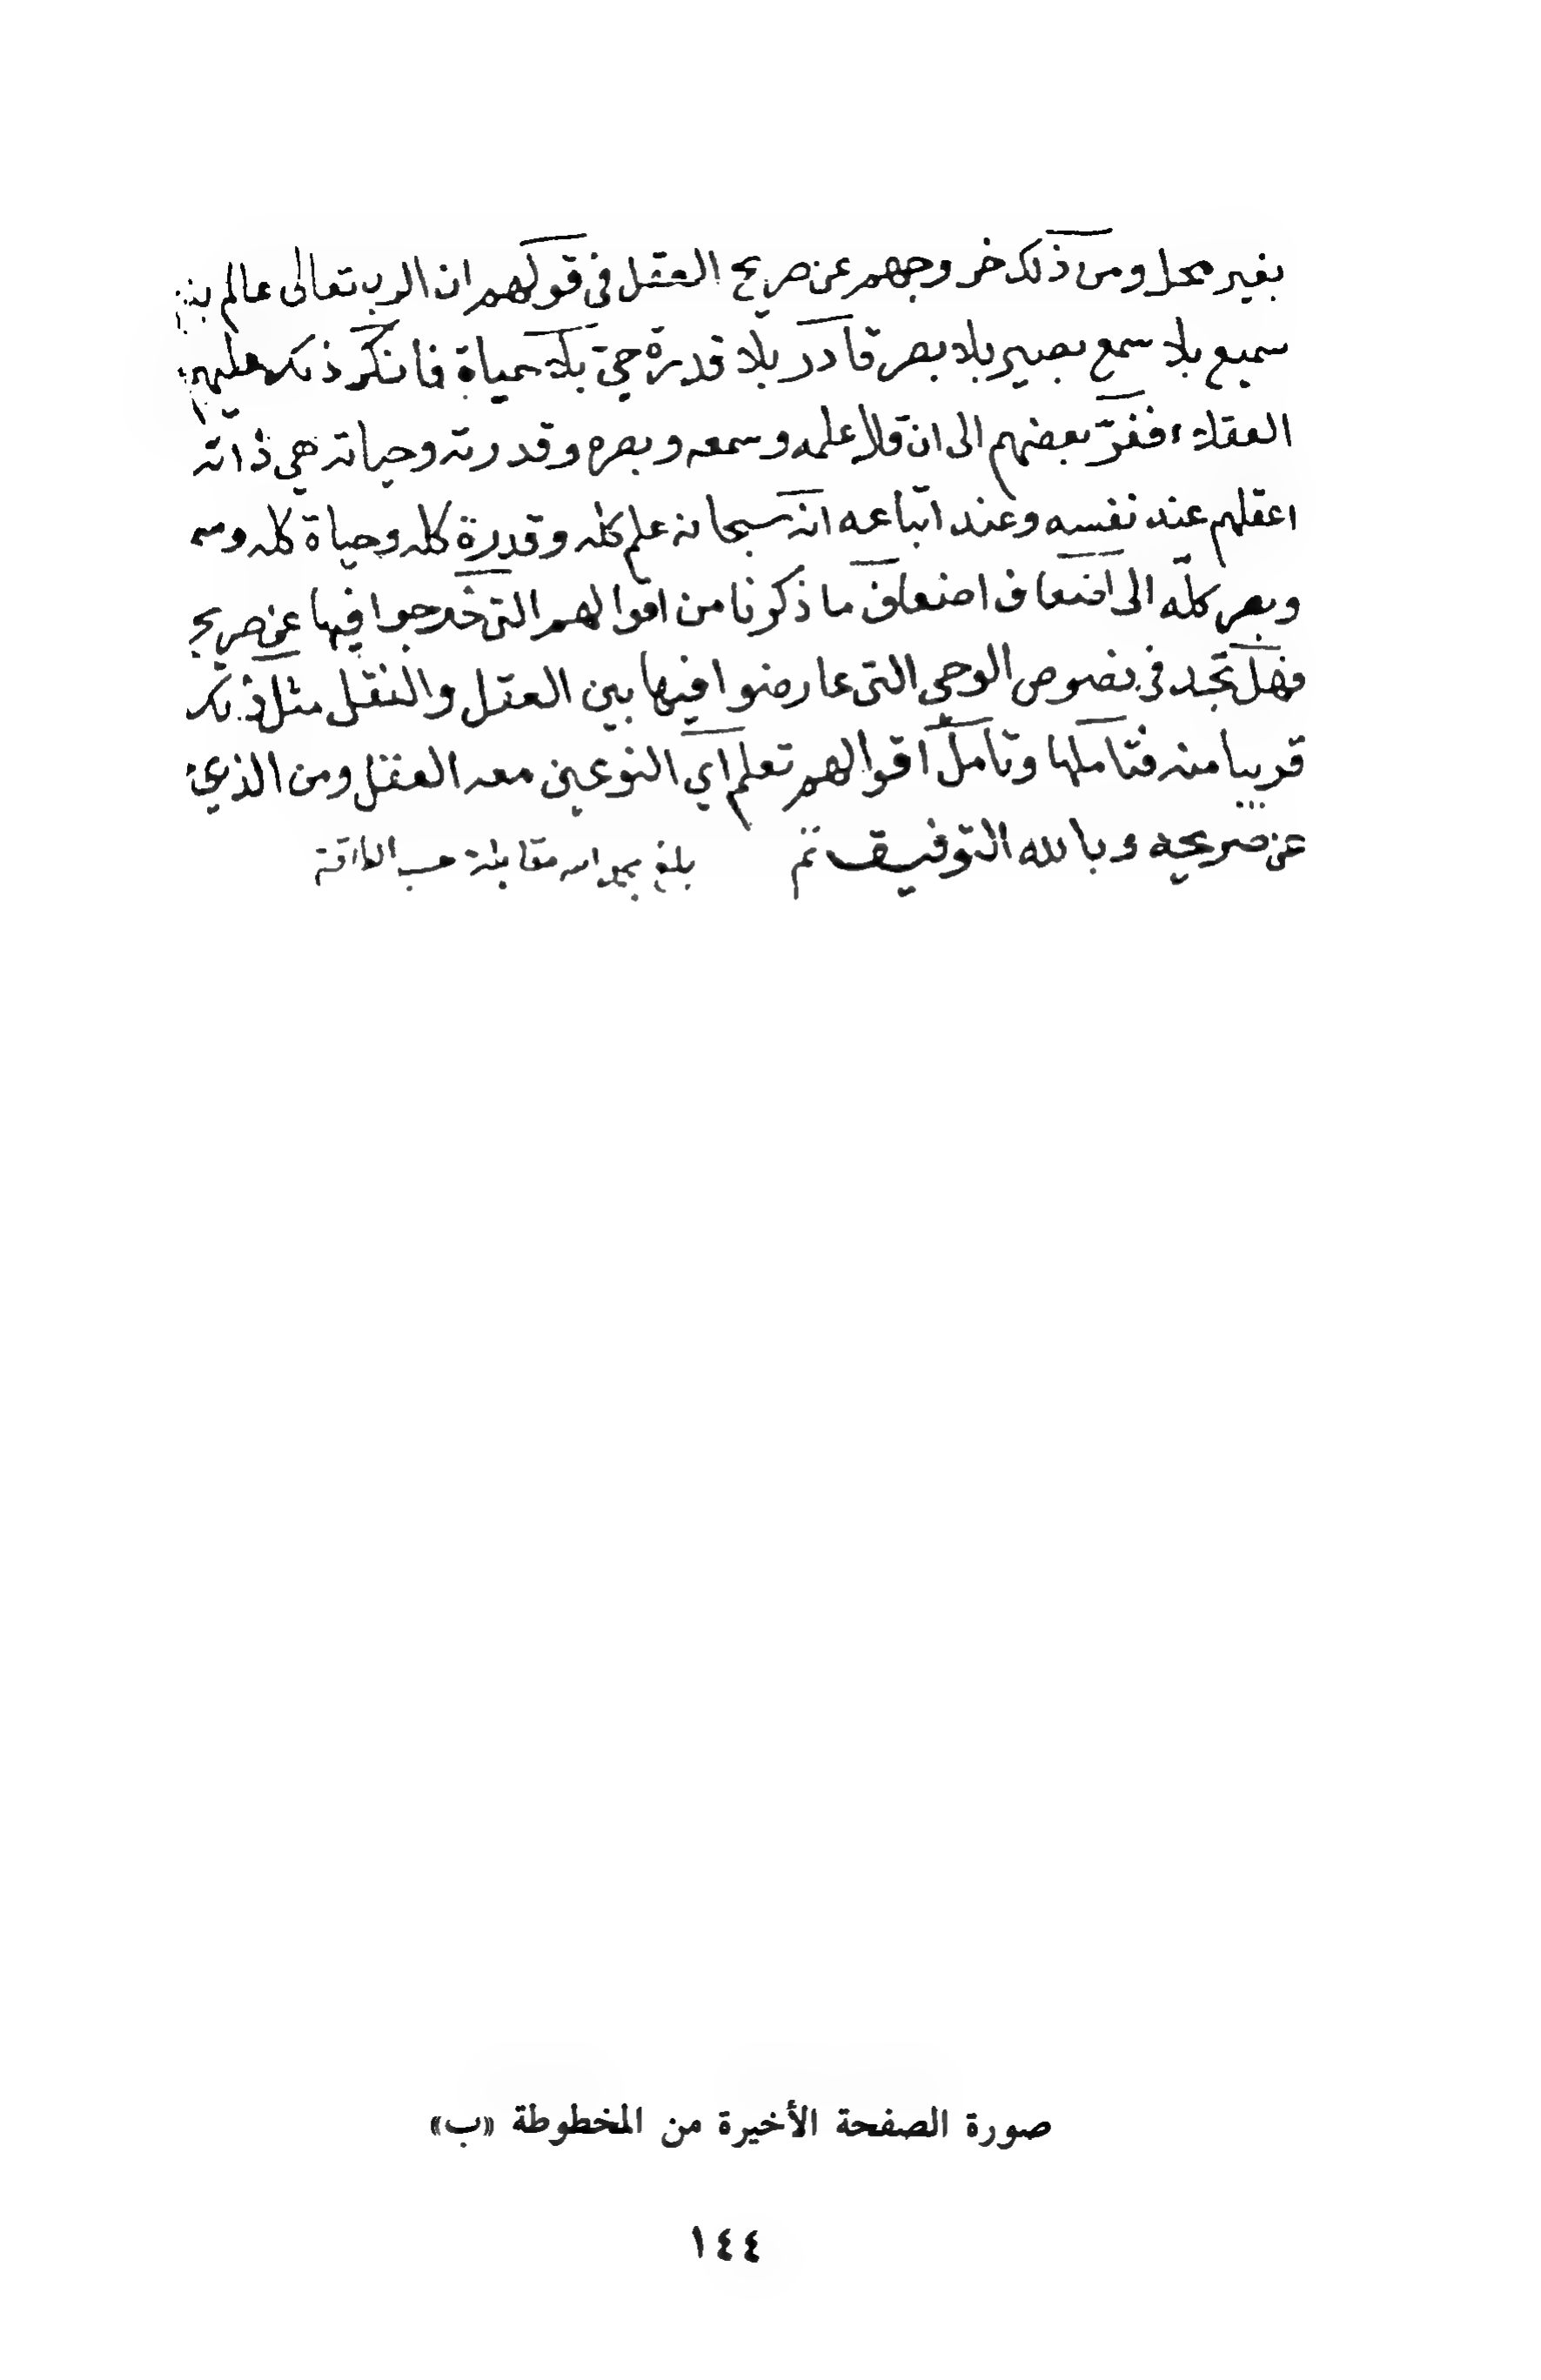 بغير محل ومن ذلك خروجهم عن صريح العقل في قولهم ان الرب تعالى عالم
سميع بلا سمع بصير بلا بصر قادر بلا قدرة حيّ بلا حياة فانكر ذلك عليهم
العقلاء ففرّ بعضهم الى ان قال علمه وسمعه وبصره وقدرته وحياته هي ذاته
اعقلهم عند نفسه وعند اتباعه انه سبحانه علم كله وقدرة كله وحياة كله وسم
وبصر كلّه الى اضعاف اضعاف ما ذكرنا من اقوالهم التي خرجوا فيها عن صريح
فهل تجد في نصوص الوحي التي عارضوا فيها بين العقل والنقل مثل ذلك
قريبا منه فتاملها وتامل اقوالهم تعلم اي النوعين معه العقل ومن الذي
عن صريحه وبالله التوفيق تم بلغ مقابلة حسب الطاقة
صورة الصفحة الأخيرة من المخطوطة «ب»
١٤٤